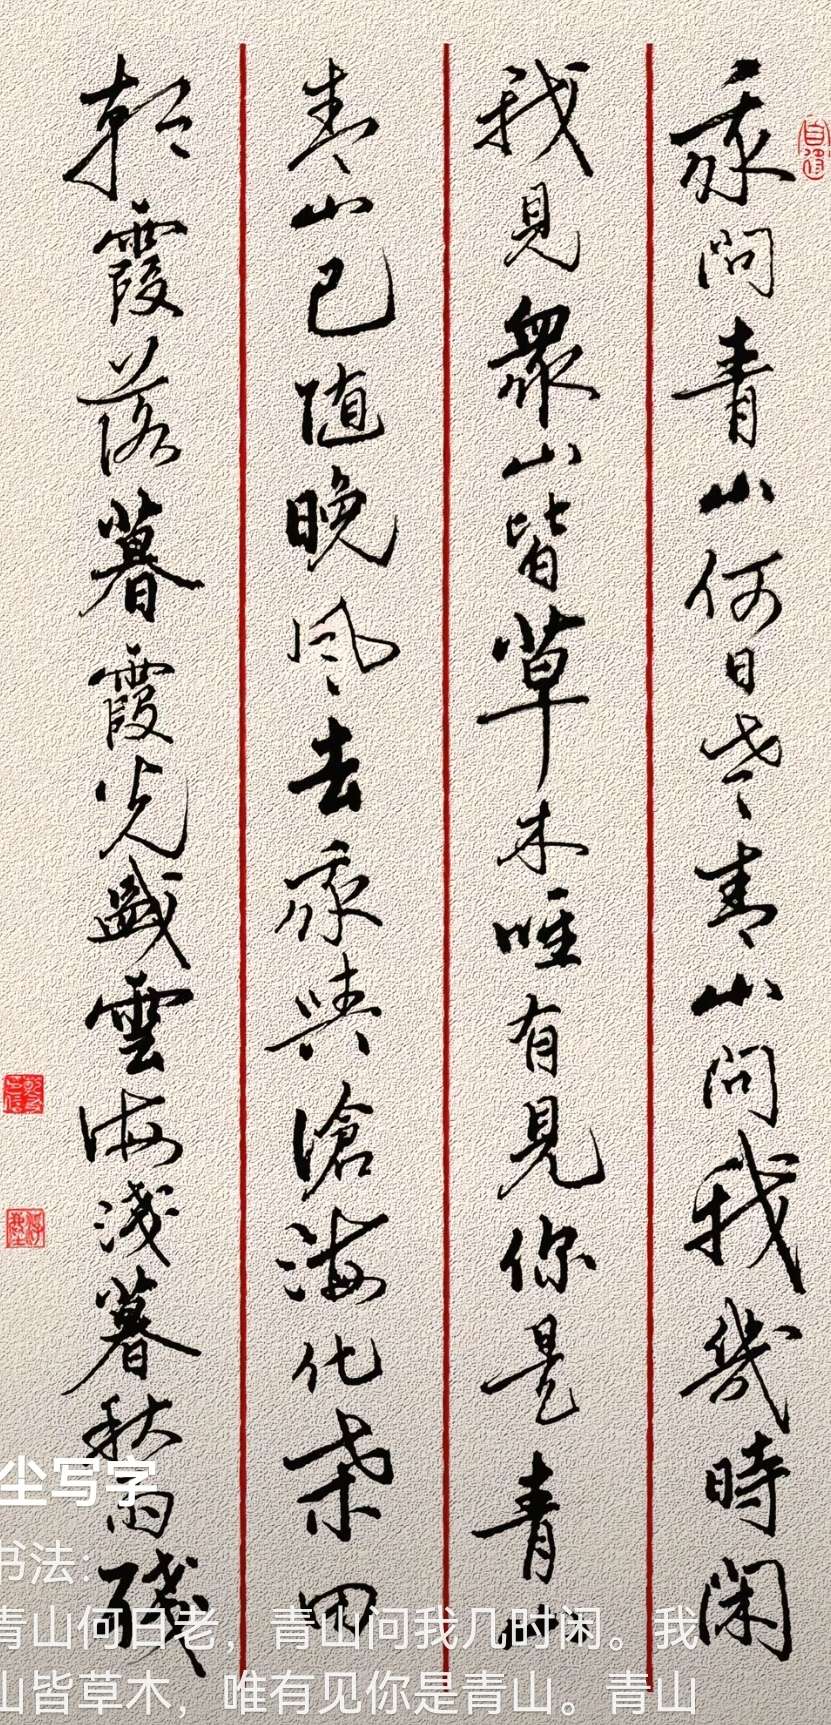 我問青山何日老青山問我幾時閑
我見眾山皆草木唯有見你是青山
青山已随晚风去我與滄海化桑田
朝霞落暮霞光盛雲海淺暮秋雨殘
尘写字
书法：
青山何日老，青山问我几时闲。我
山皆草木，唯有见你是青山。青山